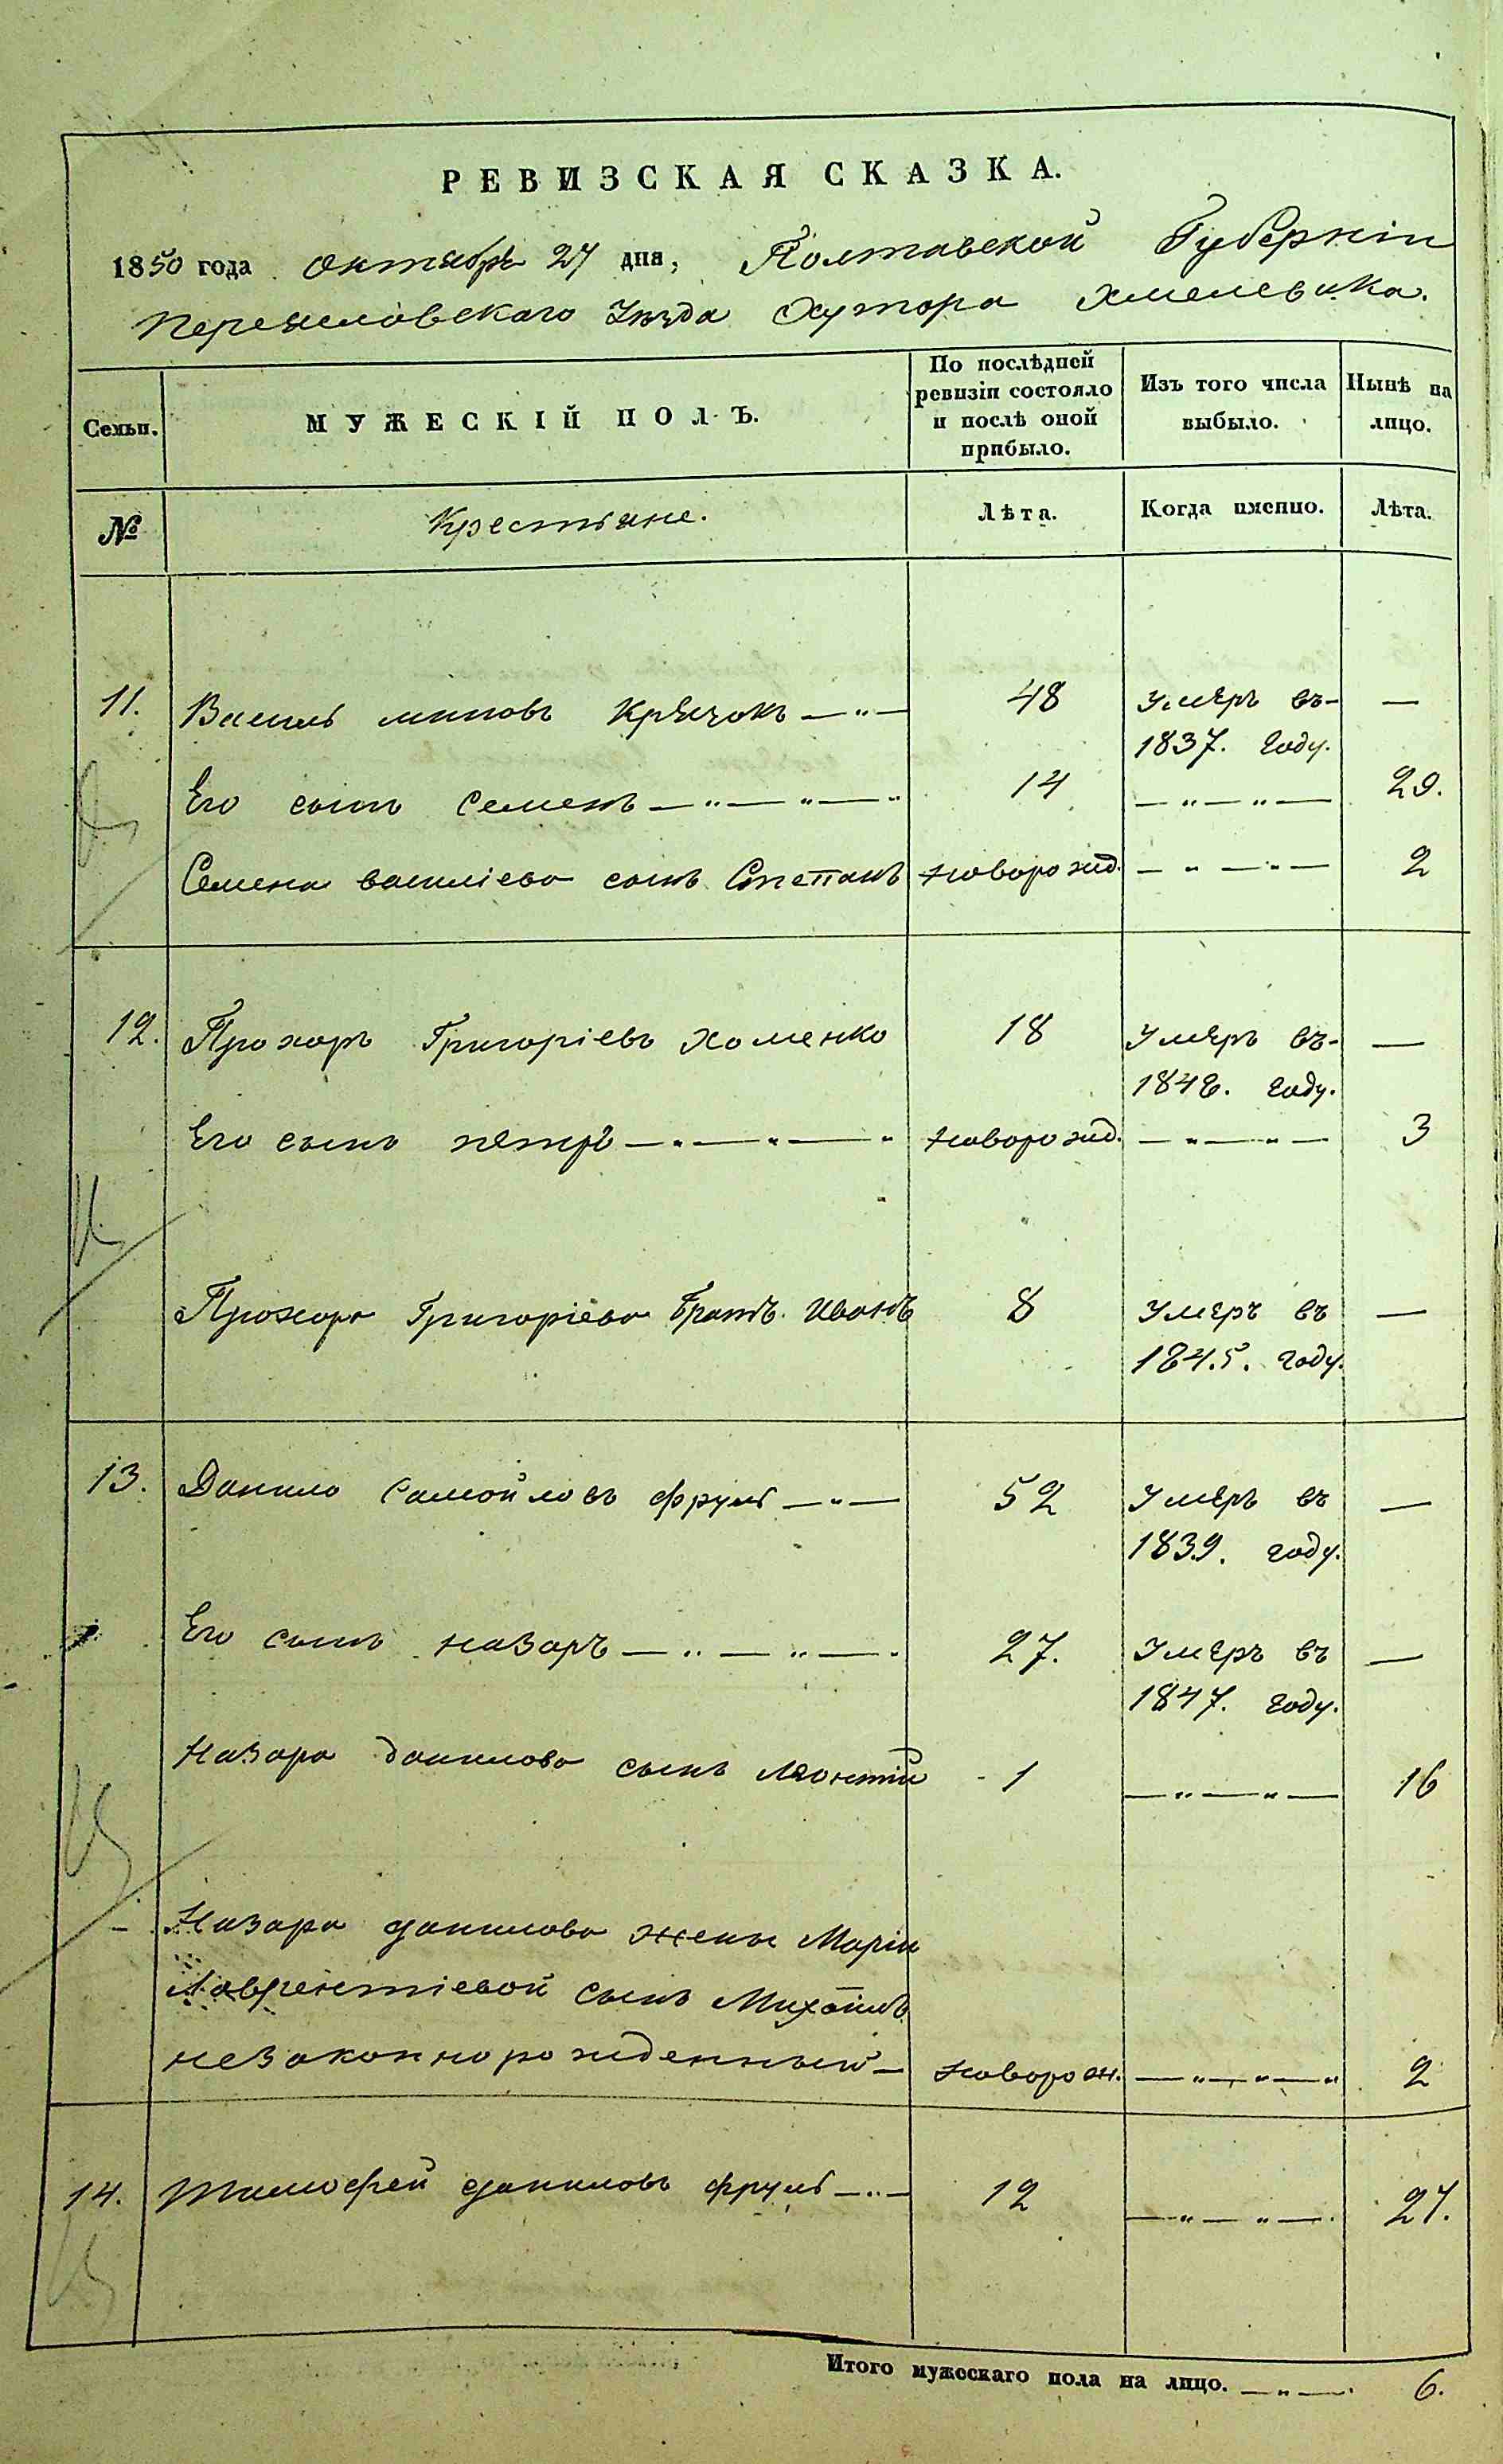 РЕВИЗСКАЯ СКАЗКА.
1850 года октября 27 дня, Полтавской Губернiи
Переяловскаго Уѣзда Хутора Хмелевика.
Семьи.
МУЖЕСКIЙ ПОЛЪ.
По послѣдней
ревизiи состояло
и послѣ оной
прибыло.
Изъ того числа
выбыло.
Нынѣ на
лицо.
№
Крестьяне.
Лѣта.
Когда именно.
Лѣта.
11. Василь Крячокъ — „ — 48 Умеръ въ — —
1837. году.
Его сынъ Семенъ — „ — „ — „ 14 — „ — „ — 29.
Семена василiева сынъ Степанъ новорожд. — „ — „ — 2
12. Прохоръ Григорiевъ Хоменко 18 Умеръ въ — —
1848. году.
Его сынъ петръ — „ — „ — „ новорожд. — „ — „ — 3
Прохора Григорiева братъ Иванъ 8 Умеръ въ —
1845. году.
13. Данило Самойловъ фруль — „ — 52 Умеръ въ —
1839. году.
Его сынъ назаръ — „ — „ — . 27. Умеръ въ —
1847. году.
Назара данилова сынъ леонтiй 1 — „ — „ — 16
Назара данилова жены Марiи
Лаврентiевой сынъ Михаилъ
незаконнорожденный — новорож. — „ — „ — „ 2
14. Тимофей даниловъ фруль — „ — 12 — „ — „ — . 27.
Итого мужескаго пола на лицо. — „ — . 6.